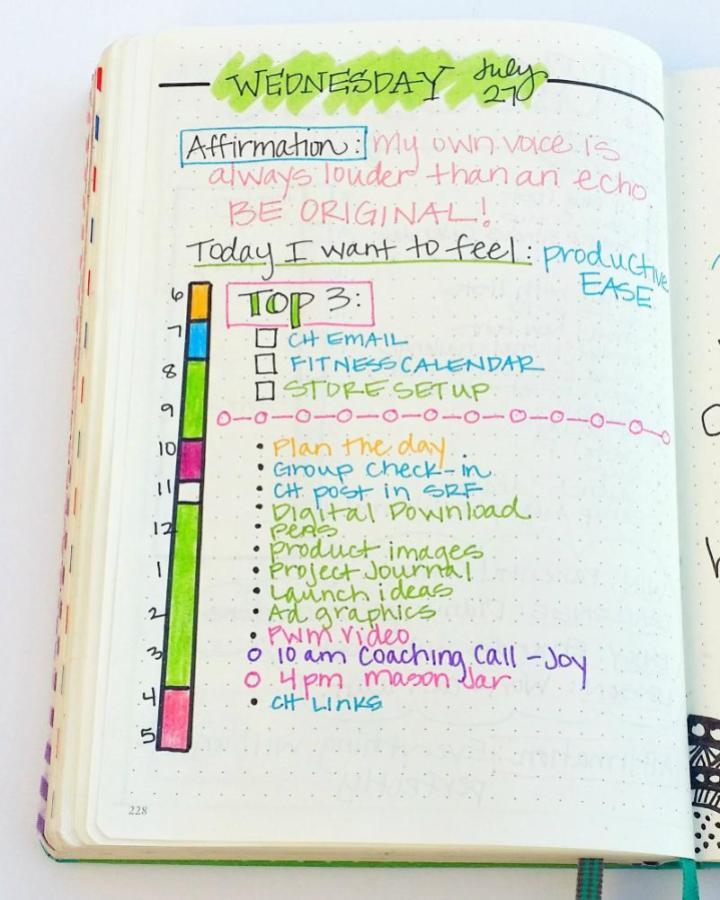 WEDNESDAY July
27
Affirmation: My own voice is
always louder than an echo.
BE ORIGINAL!
Today I want to feel: productive
EASE
6
TOP 3:
7
CH EMAIL
FITNESS CALENDAR
8
STORE SETUP
9
10
• Plan the day
• Group check-in
11
• CH post in SRF
• Digital Download
12
• pens
• product images
1
• Project Journal
• Launch ideas
2
• Ad graphics
• PWM video
3
10 am Coaching Call - Joy
4 pm mason Jar
4
• CH LINKS
5
228